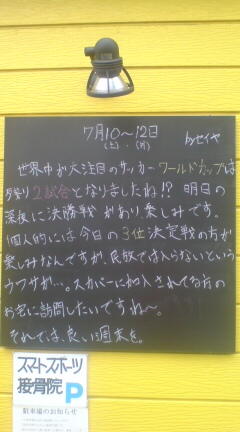 7月10～12日
(土)・(月)
byセイヤ
世界中が大注目のサッカーワールドカップは
残り2試合となりましたね!? 明日の
深夜に決勝戦があり、楽しみです。
個人的には今日の3位決定戦の方が
楽しみなんですが、民放では入らないという
ウワサが…。スカパーに加入されてる方の
お宅に訪問したいですね～。
それでは、良い週末を。
スマートスポーツ
接骨院 P
駐車場のお知らせ